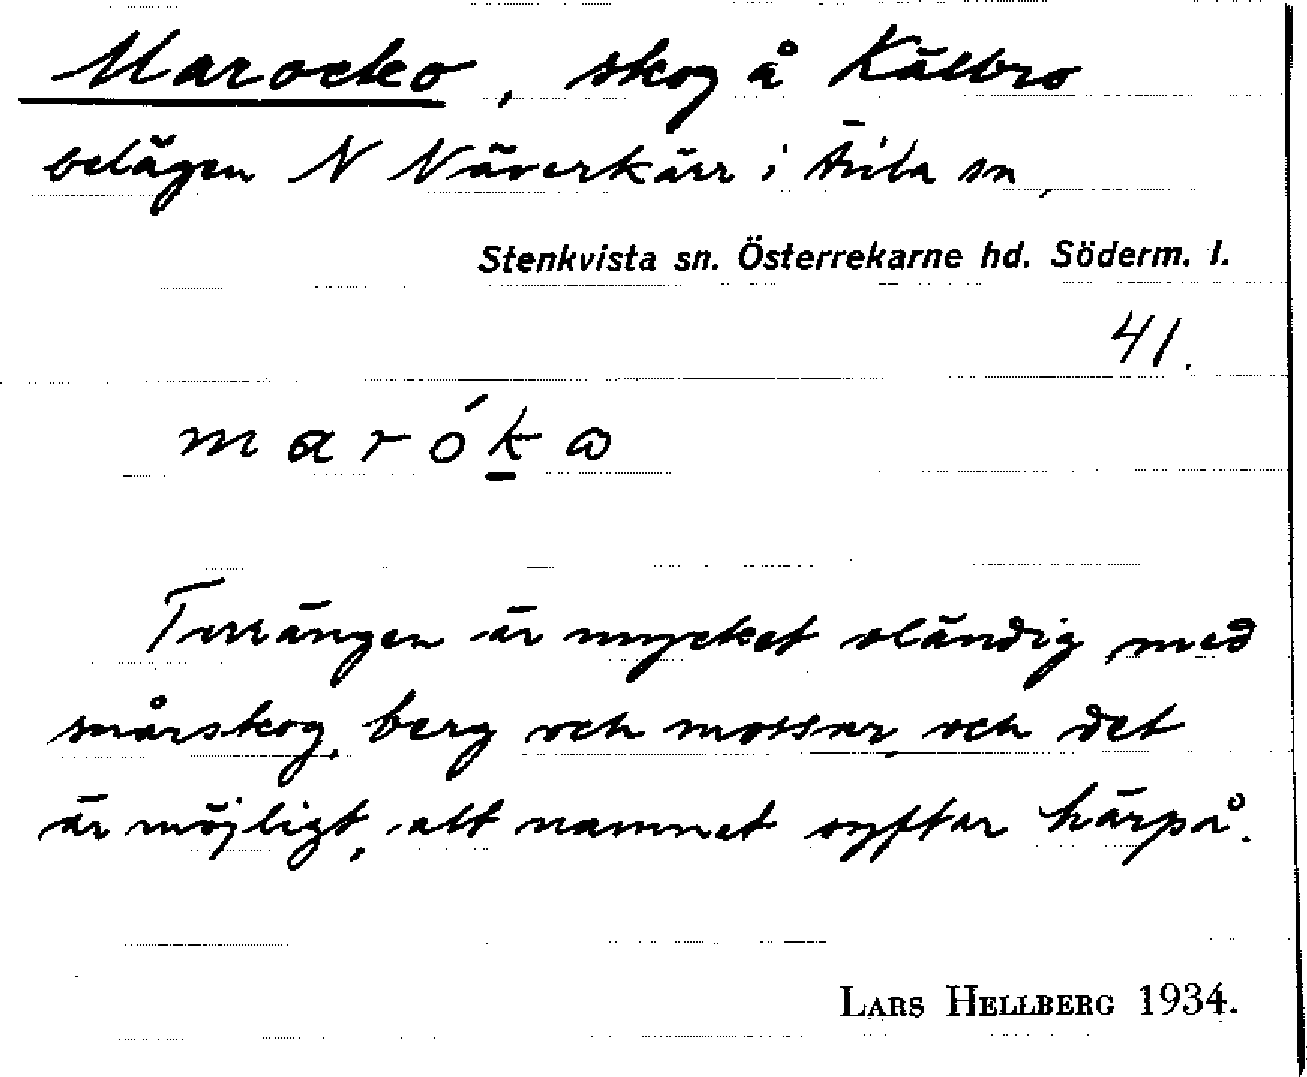 Marocko, skog å Kälbro
belägen N Näverkärr i Ärila sn,
Stenkvista sn. Österrekarne hd. Söderm. l.
41.
m a r ó k ω
Terrängen är mycket eländig med
snårskog, berg och mossar, och det
är möjligt, att namnet syftar härpå.
LARS HELLBERG 1934.